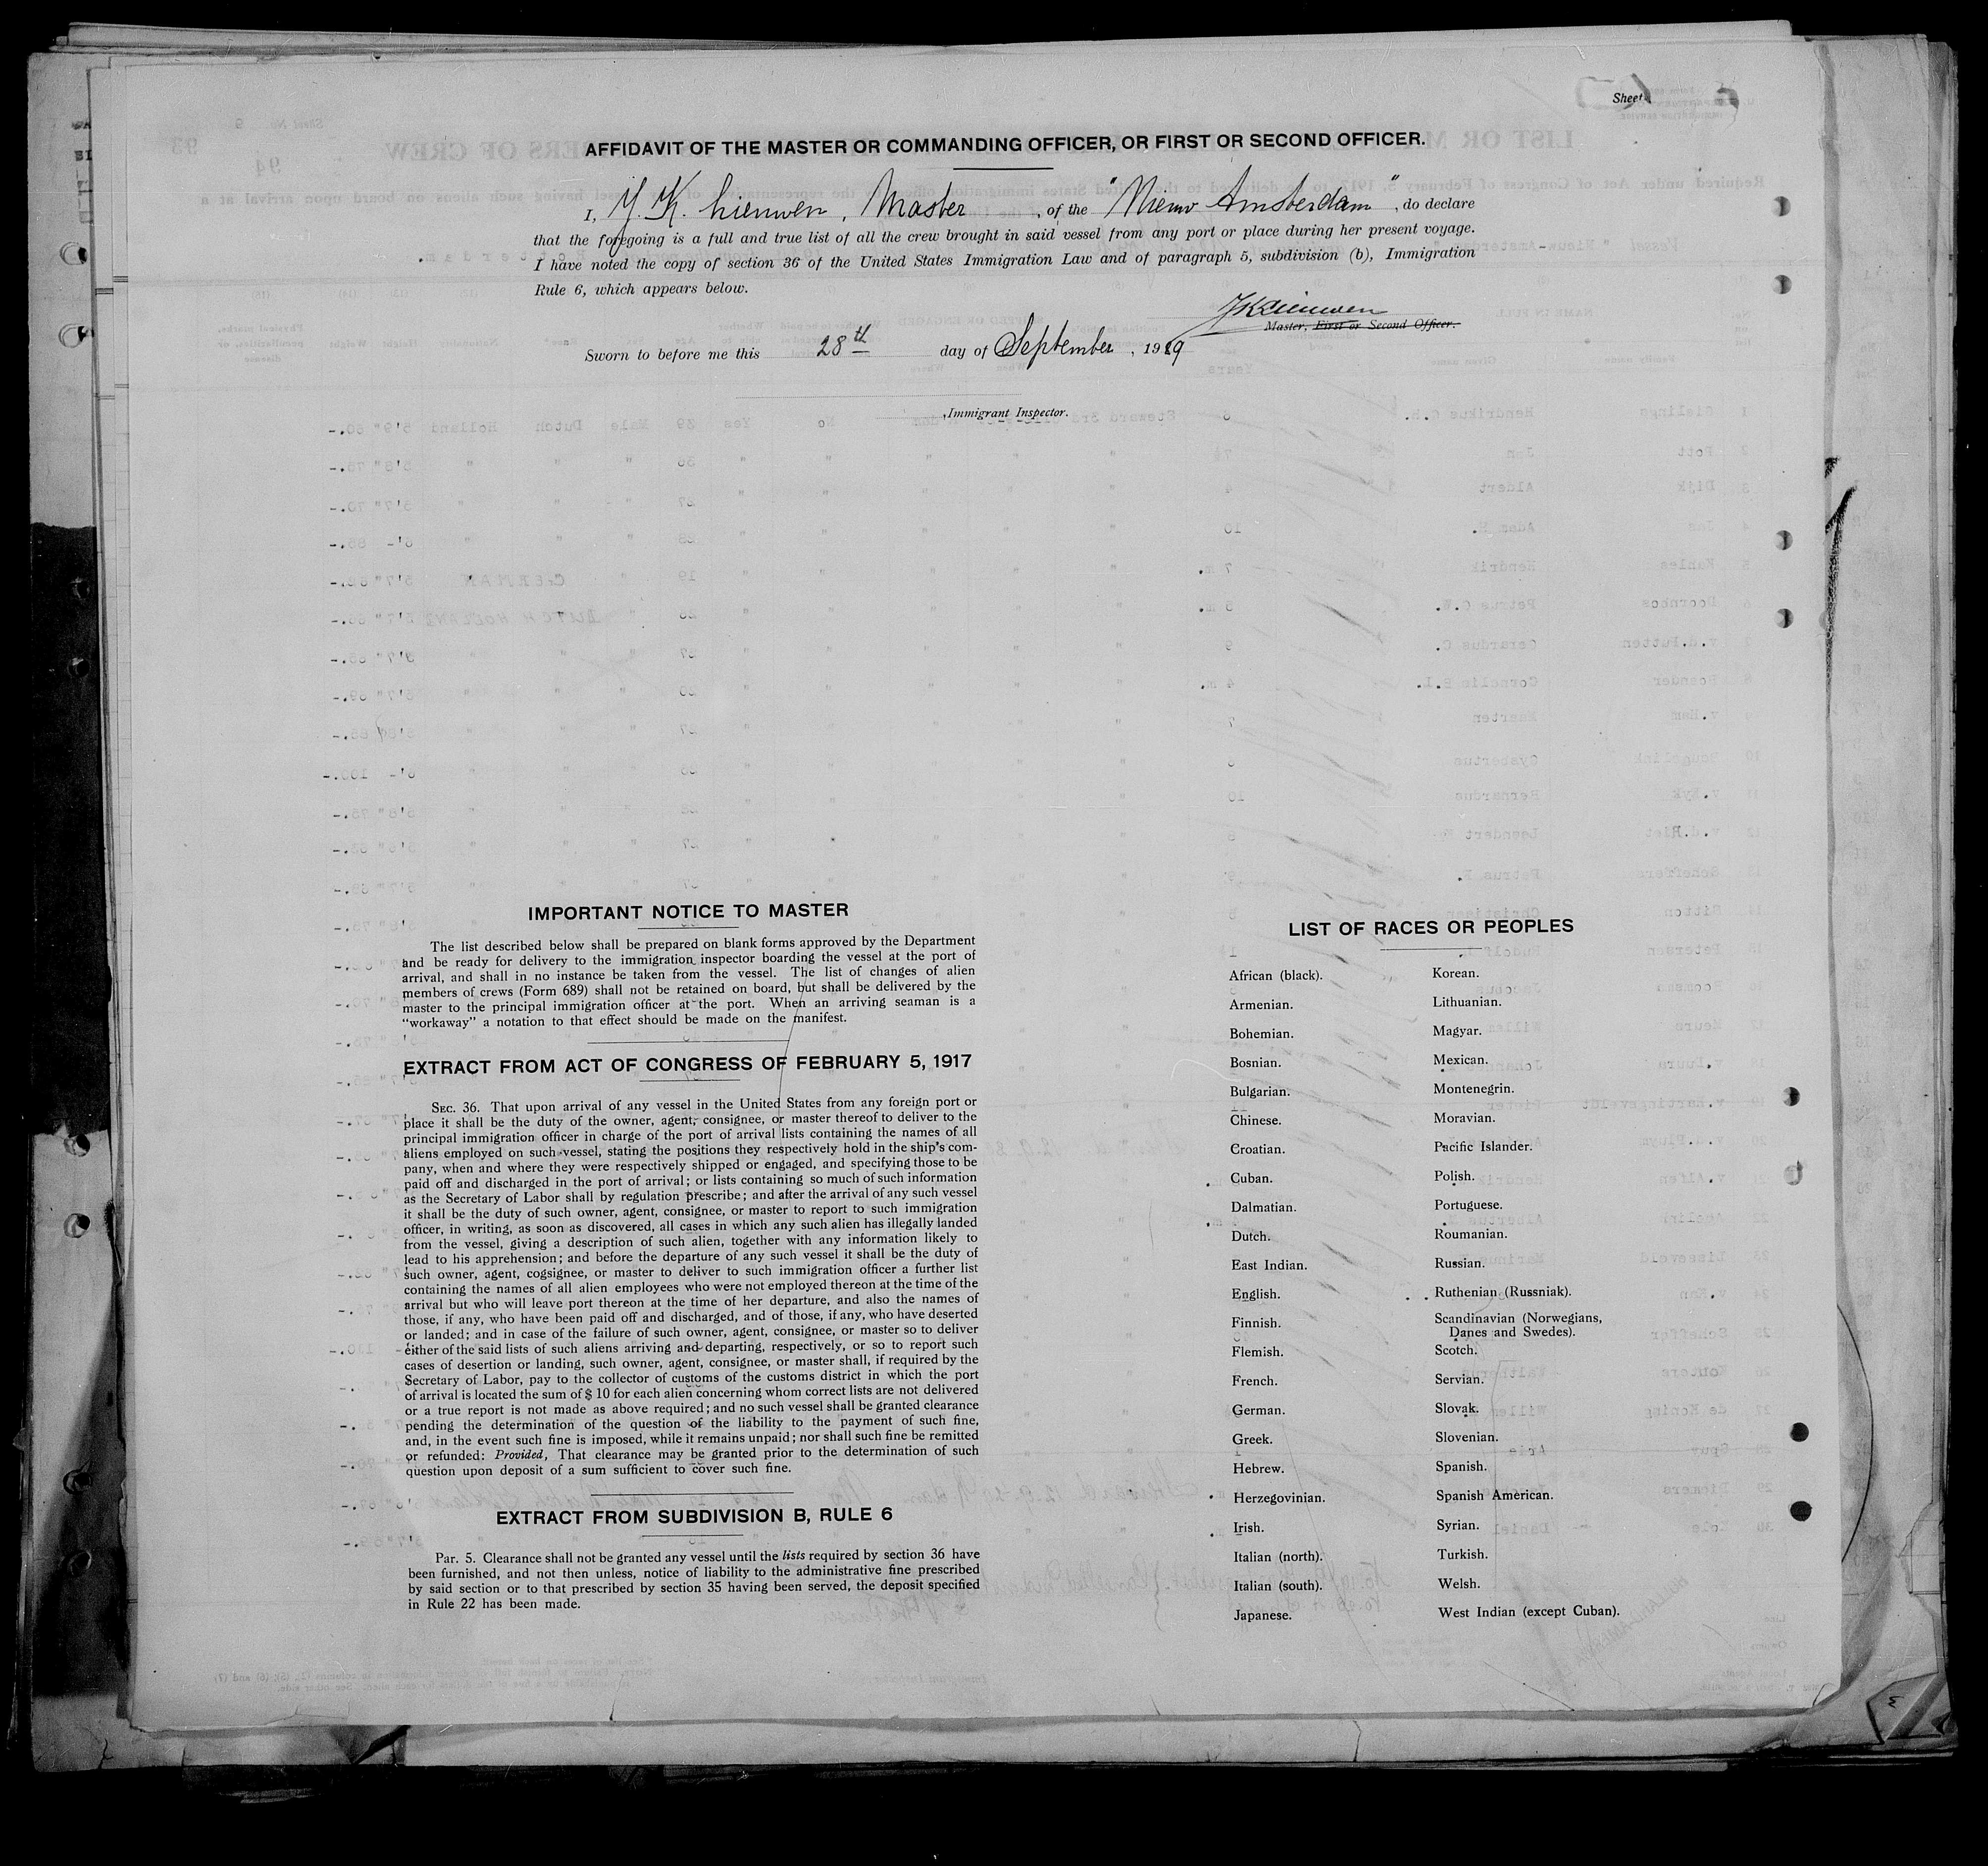 Sheet
AFFIDAVIT OF THE MASTER OR COMMANDING OFFICER, OR FIRST OR SECOND OFFICER.
I, Y. K. Lieuwen, Master, of the "Nieuw Amsterdam", do declare
that the foregoing is a full and true list of all the crew brought in said vessel from any port or place during her present voyage.
I have noted the copy of section 36 of the United States Immigration Law and of paragraph 5, subdivision (b), Immigration
Rule 6, which appears below.
YKLieuwen
Master, First or Second Officer.
Sworn to before me this 28th day of September, 1929
, Immigrant Inspector.
IMPORTANT NOTICE TO MASTER
The list described below shall be prepared on blank forms approved by the Department
and be ready for delivery to the immigration inspector boarding the vessel at the port of
arrival, and shall in no instance be taken from the vessel. The list of changes of alien
members of crews (Form 689) shall not be retained on board, but shall be delivered by the
master to the principal immigration officer at the port. When an arriving seaman is a
“workaway” a notation to that effect should be made on the manifest.
EXTRACT FROM ACT OF CONGRESS OF FEBRUARY 5, 1917
SEC. 36. That upon arrival of any vessel in the United States from any foreign port or
place it shall be the duty of the owner, agent, consignee, or master thereof to deliver to the
principal immigration officer in charge of the port of arrival lists containing the names of all
aliens employed on such vessel, stating the positions they respectively hold in the ship's com-
pany, when and where they were respectively shipped or engaged, and specifying those to be
paid off and discharged in the port of arrival; or lists containing so much of such information
as the Secretary of Labor shall by regulation prescribe; and after the arrival of any such vessel
it shall be the duty of such owner, agent, consignee, or master to report to such immigration
officer, in writing, as soon as discovered, all cases in which any such alien has illegally landed
from the vessel, giving a description of such alien, together with any information likely to
lead to his apprehension; and before the departure of any such vessel it shall be the duty of
such owner, agent, cogsignee, or master to deliver to such immigration officer a further list
containing the names of all alien employees who were not employed thereon at the time of the
arrival but who will leave port thereon at the time of her departure, and also the names of
those, if any, who have been paid off and discharged, and of those, if any, who have deserted
or landed; and in case of the failure of such owner, agent, consignee, or master so to deliver
either of the said lists of such aliens arriving and departing, respectively, or so to report such
cases of desertion or landing, such owner, agent, consignee, or master shall, if required by the
Secretary of Labor, pay to the collector of customs of the customs district in which the port
of arrival is located the sum of $10 for each alien concerning whom correct lists are not delivered
or a true report is not made as above required; and no such vessel shall be granted clearance
pending the determination of the question of the liability to the payment of such fine,
and, in the event such fine is imposed, while it remains unpaid; nor shall such fine be remitted
or refunded: Provided, That clearance may be granted prior to the determination of such
question upon deposit of a sum sufficient to cover such fine.
EXTRACT FROM SUBDIVISION B, RULE 6
Par. 5. Clearance shall not be granted any vessel until the lists required by section 36 have
been furnished, and not then unless, notice of liability to the administrative fine prescribed
by said section or to that prescribed by section 35 having been served, the deposit specified
in Rule 22 has been made.
LIST OF RACES OR PEOPLES
African (black).
Armenian.
Bohemian.
Bosnian.
Bulgarian.
Chinese.
Croatian.
Cuban.
Dalmatian.
Dutch.
East Indian.
English.
Finnish.
Flemish.
French.
German.
Greek.
Hebrew.
Herzegovinian.
Irish.
Italian (north).
Italian (south).
Japanese.
Korean.
Lithuanian.
Magyar.
Mexican.
Montenegrin.
Moravian.
Pacific Islander.
Polish.
Portuguese.
Roumanian.
Russian.
Ruthenian (Russniak).
Scandinavian (Norwegians,
Danes and Swedes).
Scotch.
Servian.
Slovak.
Slovenian.
Spanish.
Spanish American.
Syrian.
Turkish.
Welsh.
West Indian (except Cuban).